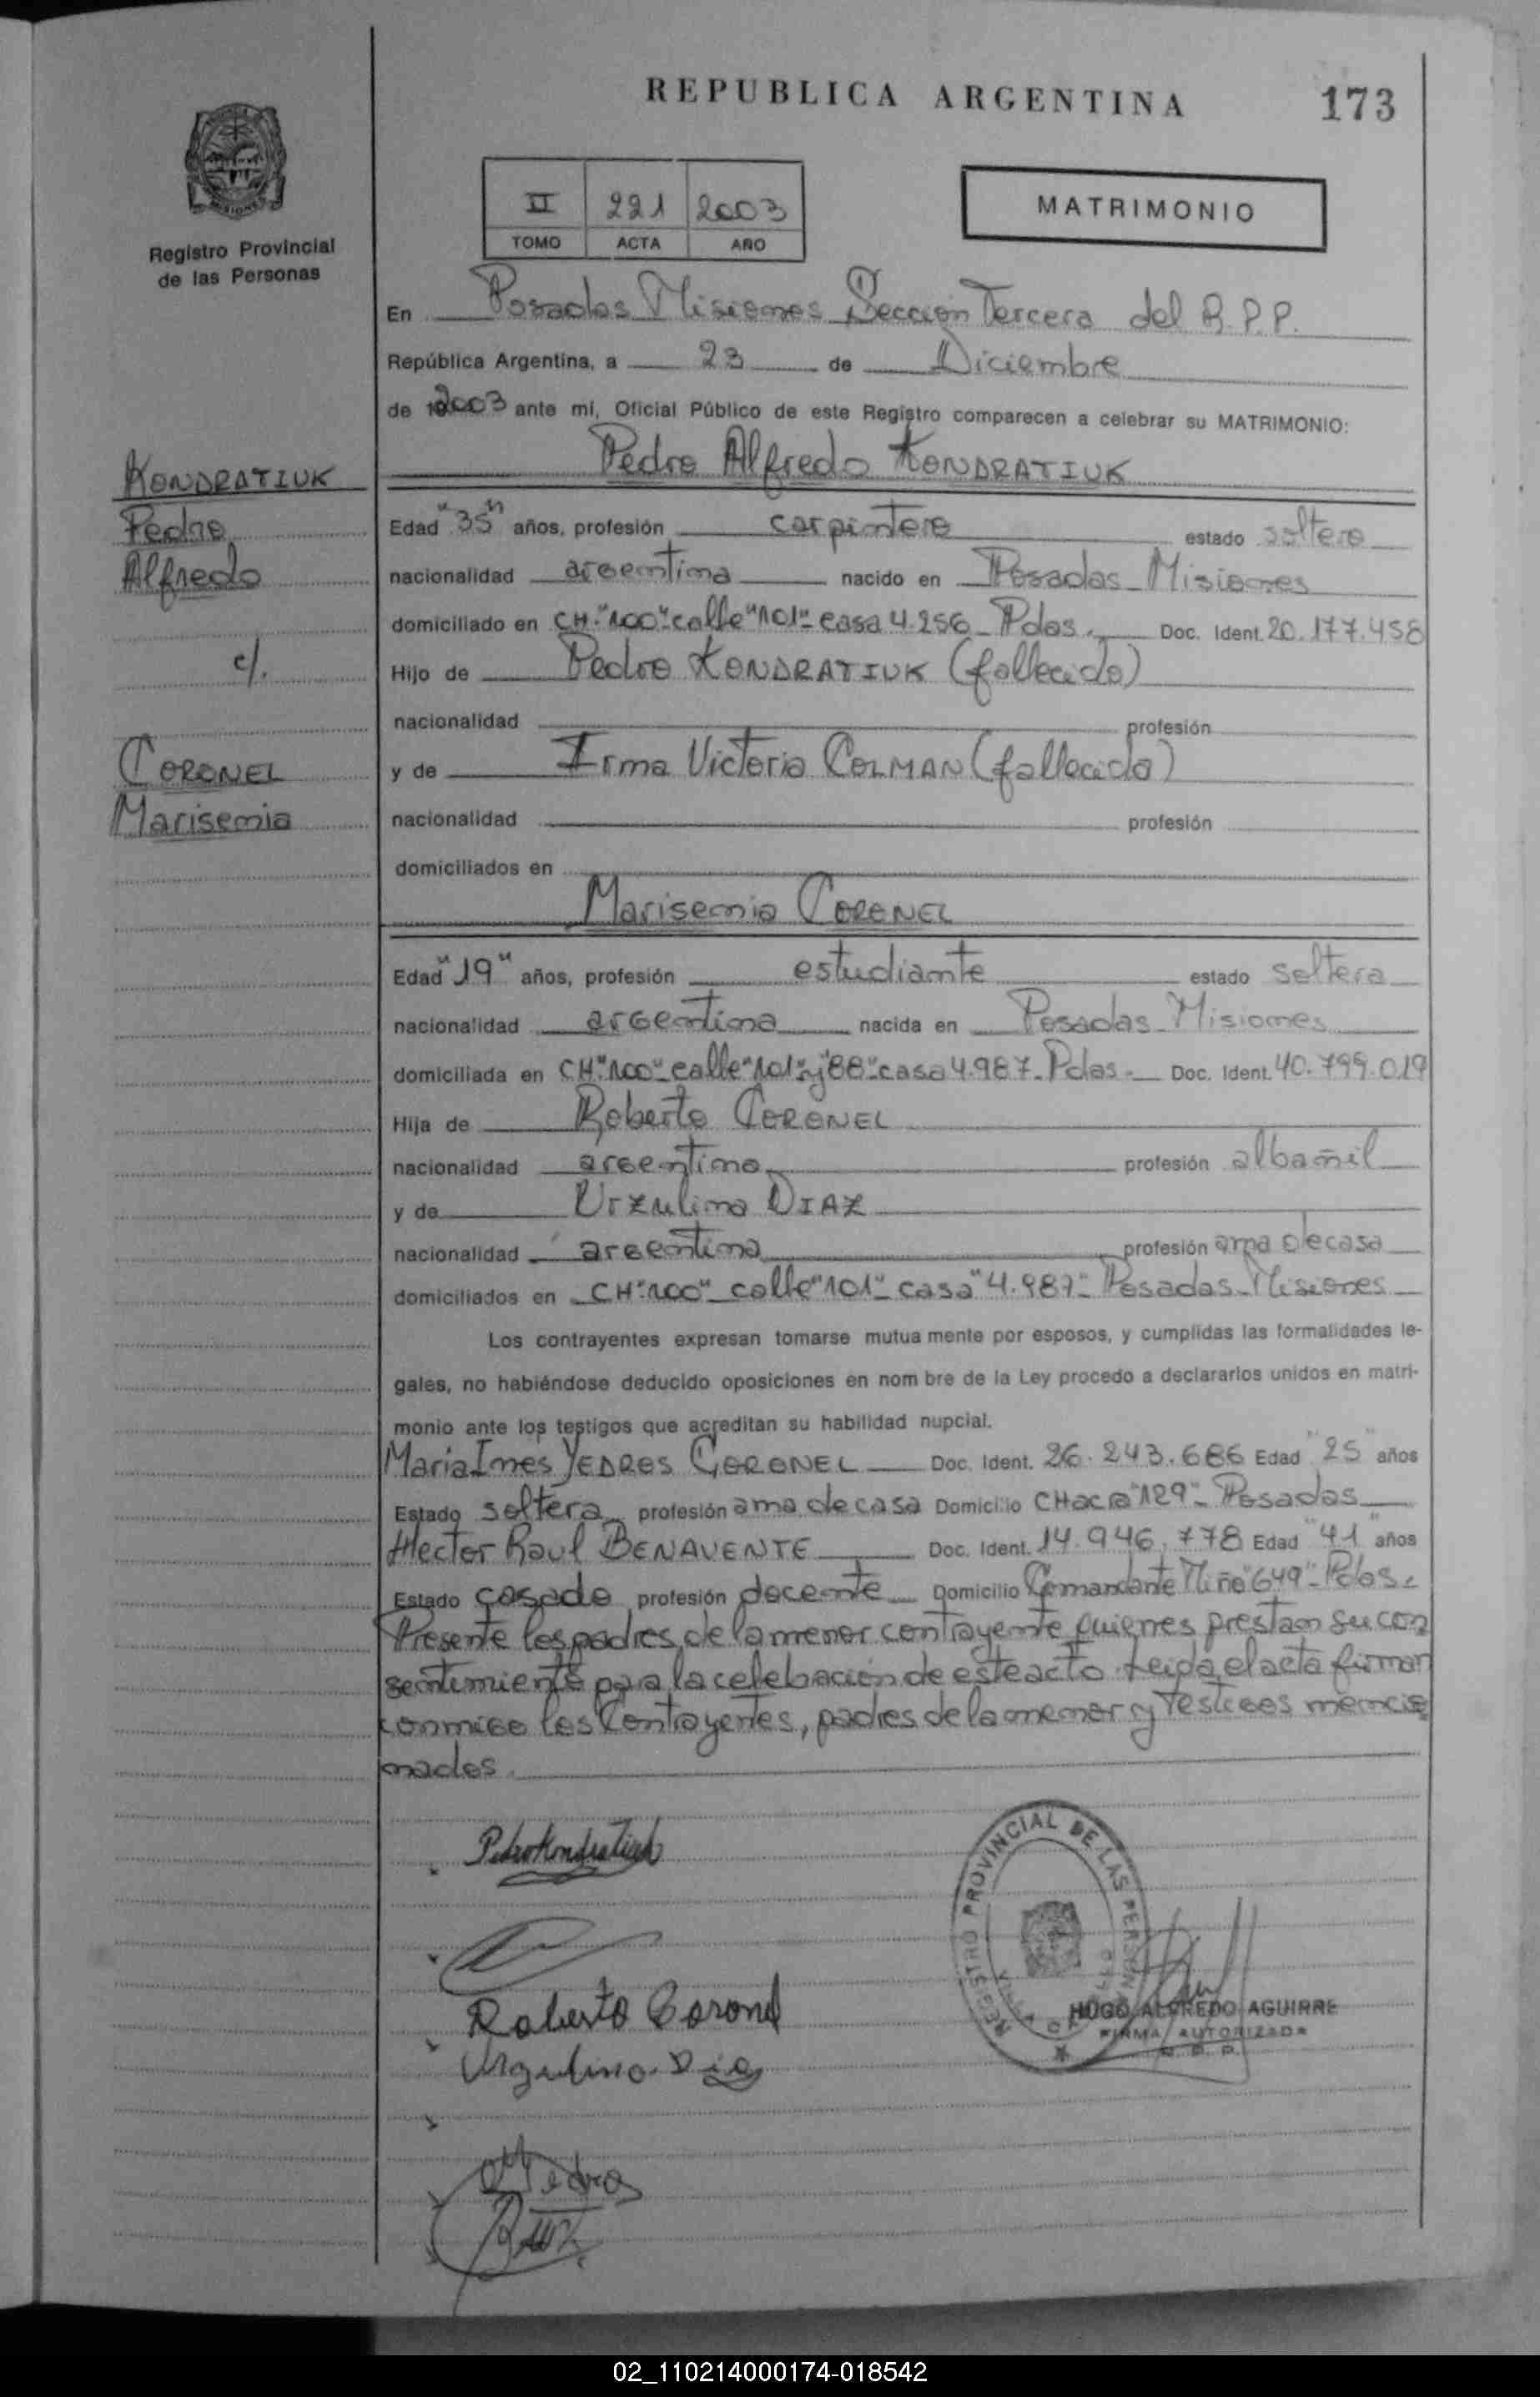 REPUBLICA ARGENTINA
173
Registro Provincial
de las Personas
II 221 2003
TOMO ACTA AÑO
MATRIMONIO
En Posadas Misiones Sección Tercera del R.P.P.
República Argentina, a 23 de Diciembre
de 2003 ante mí, Oficial Público de este Registro comparecen a celebrar su MATRIMONIO:
Pedro Alfredo KONDRATIUK
KONDRATIUK
Pedro
Alfredo
c/.
CORONEL
Marisenia
Edad "35" años, profesión carpintero estado soltero
nacionalidad argentina nacido en Posadas-Misiones
domiciliado en CH-"100"-calle"101"-casa 4.256-Pdas. Doc. Ident. 20.177.458
Hijo de Pedro KONDRATIUK (fallecido)
nacionalidad profesión
y de Irma Victoria COLMAN (fallecida)
nacionalidad profesión
domiciliados en
Marisenia CORONEL
Edad "19" años, profesión estudiante estado soltera
nacionalidad argentina nacida en Posadas-Misiones
domiciliada en CH-"100"-calle"101"y"88"-casa 4.987-Pdas.- Doc. Ident. 40.799.019
Hija de Roberto CORONEL
nacionalidad argentina profesión albañil
y de Urzulina DIAZ
nacionalidad argentina profesión ama de casa
domiciliados en CH-"100"-calle"101"-casa"4.987"-Posadas-Misiones
Los contrayentes expresan tomarse mutua mente por esposos, y cumplidas las formalidades le-
gales, no habiéndose deducido oposiciones en nom bre de la Ley procedo a declararlos unidos en matri-
monio ante los testigos que acreditan su habilidad nupcial.
Maria Ines YEDROS CORONEL Doc. Ident. 26.243.686 Edad "25" años
Estado soltera profesión ama de casa Domicilio CHacra"129"-Posadas
Hector Raul BENAVENTE Doc. Ident. 14.946.778 Edad "41" años
Estado casado profesión docente Domicilio Comandante Miño"649"-Pdas.
Presente los padres de la menor contrayente quienes prestan su con
sentimiento para la celebración de este acto. Leída el acta firman
conmigo los Contrayentes, padres de la menor y Testigos mencio
nados.
Pedro Kondratiuk
REGISTRO PROVINCIAL DE LAS PERSONAS
Roberto Coronel
HUGO ALFREDO AGUIRRE
FIRMA AUTORIZADA
R. P. P.
Urzulina Dia
Yedros
02_110214000174-018542